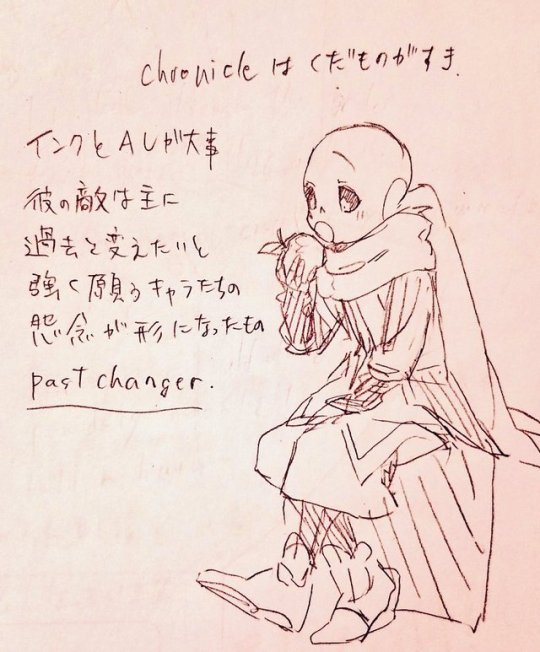 chronicle は くだものがすき
インクと AUが大事
彼の敵は主に
過去を変えたいと
強く願うキャラたちの
怨念が形になったもの
past changer.